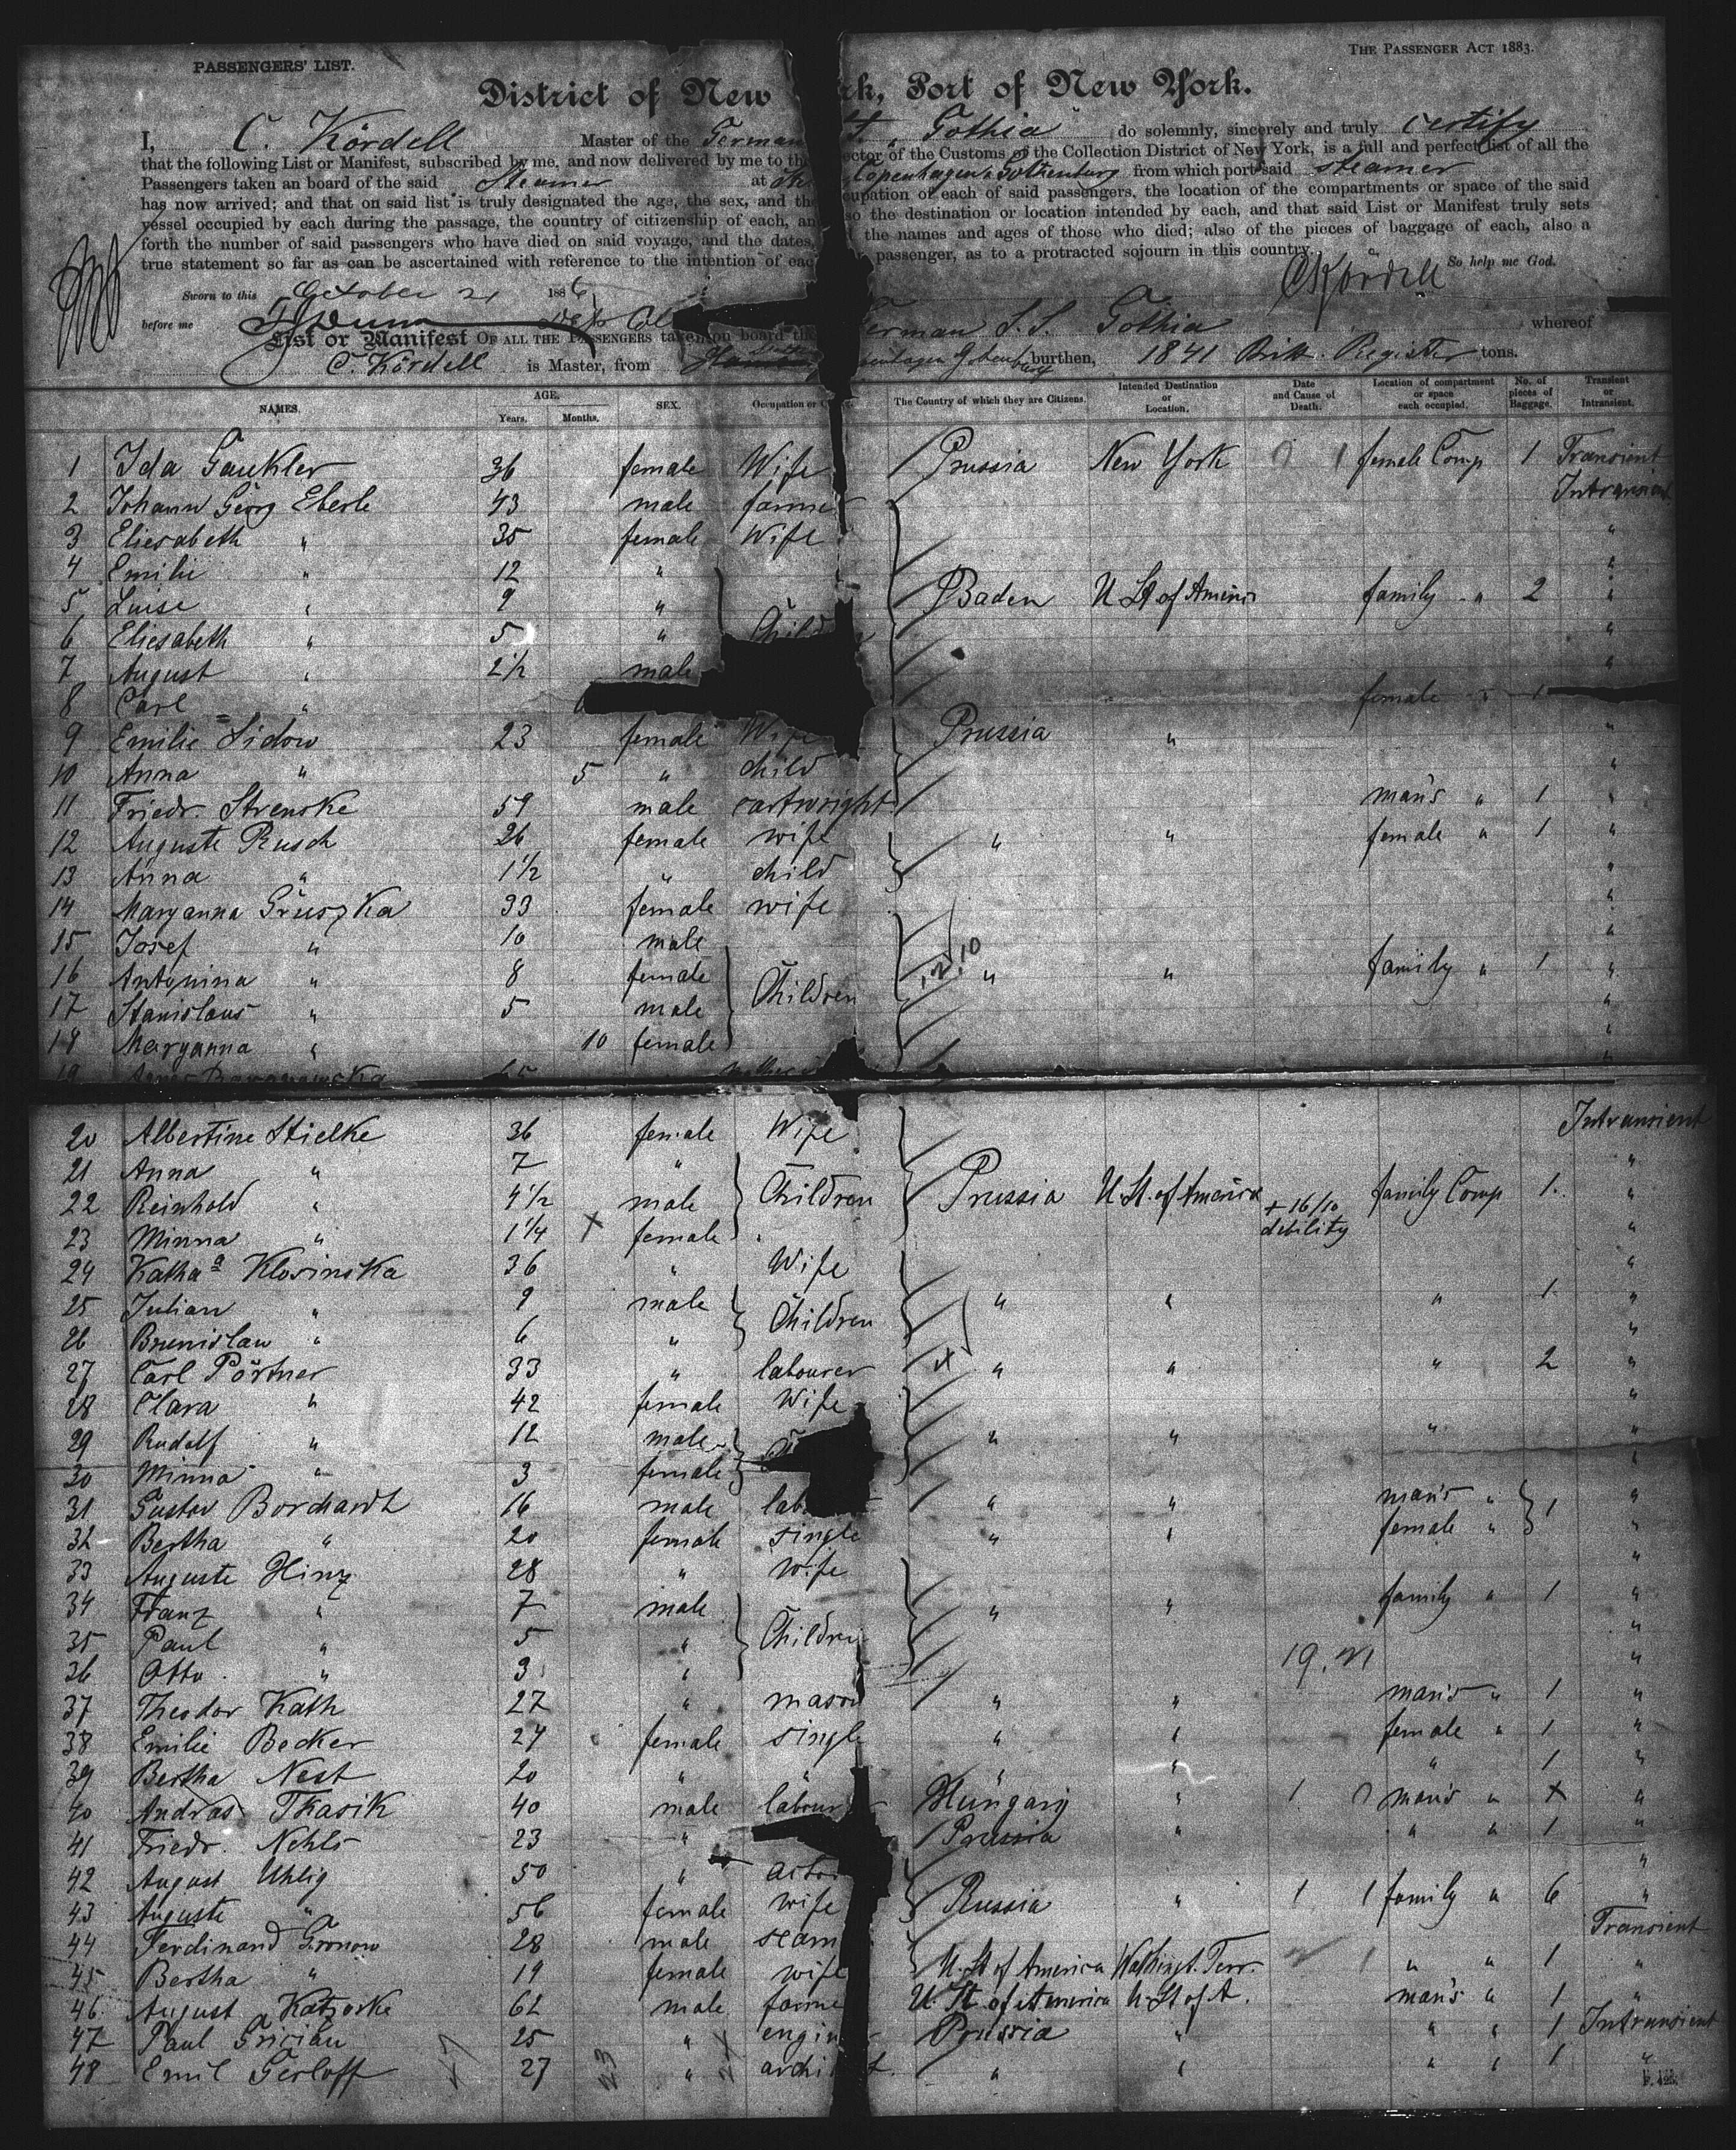 PASSENGERS' LIST.
THE PASSENGER ACT 1883.
District of New rk, Port of New York.
I, C. Kördell Master of the German Gothia do solemnly, sincerely and truly certify
that the following List or Manifest, subscribed by me, and now delivered by me to the ector of the Customs of the Collection District of New York, is a full and perfect list of all the
Passengers taken an board of the said Steamer at Copenhagen & Gothenburg from which port said steamer
has now arrived; and that on said list is truly designated the age, the sex, and the cupation of each of said passengers, the location of the compartments or space of the said
vessel occupied by each during the passage, the country of citizenship of each, an so the destination or location intended by each, and that said List or Manifest truly sets
forth the number of said passengers who have died on said voyage, and the dates, the names and ages of those who died; also of the pieces of baggage of each, also a
true statement so far as can be ascertained with reference to the intention of eac passenger, as to a protracted sojourn in this country.
So help me God.
CKördell
Sworn to this October 21 1886
before me
List or Manifest OF ALL THE PASSENGERS taken on board the German S.S. Gothia whereof
C. Kördell is Master, from burthen, 1841 Britt. Register tons.
NAMES. AGE. Years. Months. SEX. Occupation or The Country of which they are Citizens. Intended Destination or Location. Date and Cause of Death. Location of compartment or space each occupied. No. of pieces of Baggage. Transient or Intransient.
1 Ida Gaukler 36 female Wife Prussia New York female Comp 1 Transient
2 Johann Georg Eberle 43 male farmer Intransient
3 Eliesabeth " 35 female Wife "
4 Emilie " 12 " "
5 Luise " 9 " Baden U St of America family " 2 "
6 Eliesabeth " 5 " Children "
7 August " 2 1/2 male "
8 Carl " female " 1
9 Emilie Lidow 23 female Wife Prussia " "
10 Anna " 5 " child "
11 Friedr. Strenske 59 male cartwright man's " 1 "
12 Auguste Rusch 26 female wife " " female " 1 "
13 Anna " 1 1/2 " child "
14 Maryanna Gruszka 33 female wife "
15 Josef " 10 male "
16 Antonina " 8 female Children " " family " 1 "
17 Stanislaus " 5 male "
18 Maryanna " 10 female "
19
20 Albertine Stielke 36 female Wife Intransient
21 Anna " 7 " "
22 Reinhold " 4 1/2 male Children Prussia U. St. of America + 16/10 family Comp 1 "
23 Minna " 1 1/4 x female debility "
24 Katha Klosinska 36 " Wife "
25 Julian " 9 male Children " " " 1 "
26 Brunislaw " 6 " "
27 Carl Pörtner 33 " labourer x " " " 2 "
28 Clara " 42 female Wife "
29 Rudolf " 12 male " " " "
30 Minna " 3 female "
31 Gustav Borchardt 16 male lab " " man's " 1 "
32 Bertha " 20 female single " " female " "
33 Auguste Hinz 28 " wife "
34 Franz " 7 male Children " " family " 1 "
35 Paul " 5 " "
36 Otto " 3 " "
37 Theodor Kath 27 " mason " " man's " 1 "
38 Emilie Becker 24 female single " " female " 1 "
39 Bertha Nest 20 " " " " " 1 "
40 Andras Tkasik 40 male labour Hungary " man's " x "
41 Friedr. Nehls 23 " Prussia " " " 1 "
42 August Uhlig 50 " actor "
43 Auguste " 56 female wife Russia " family " 6 "
44 Ferdinand Gronow 28 male seam Transient
45 Bertha " 19 female wife U. St of America Washingt. Terr. " " 1 "
46 August Katzorke 62 male farme U. St. of America U. St of A. man's " 1 "
47 Paul Grician 25 " engin Prussia " " " 1 Intransient
48 Emil Gerloff 27 " archit " " " " 1 "